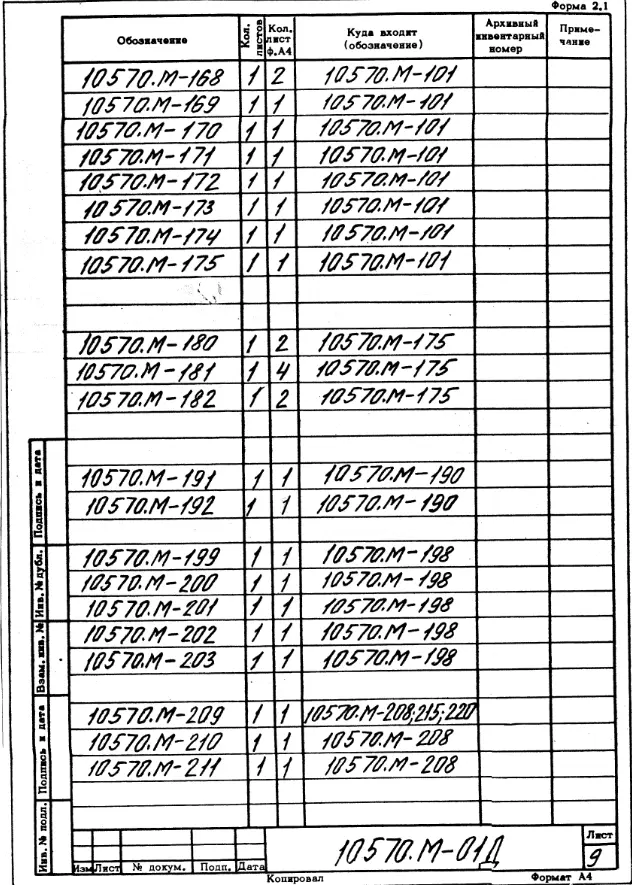 Форма 2.1
Обозначение Кол. листов Кол. лист ф.А4 Куда входит (обозначение) Архивный инвентарный номер Приме-чание
10570.М-168 1 2 10570.М-101
10570.М-169 1 1 10570.М-101
10570.М-170 1 1 10570.М-101
10570.М-171 1 1 10570.М-101
10570.М-172 1 1 10570.М-101
10570.М-173 1 1 10570.М-101
10570.М-174 1 1 10570.М-101
10570.М-175 1 1 10570.М-101
10570.М-180 1 2 10570.М-175
10570.М-181 1 4 10570.М-175
10570.М-182 1 2 10570.М-175
10570.М-191 1 1 10570.М-190
10570.М-192 1 1 10570.М-190
10570.М-199 1 1 10570.М-198
10570.М-200 1 1 10570.М-198
10570.М-201 1 1 10570.М-198
10570.М-202 1 1 10570.М-198
10570.М-203 1 1 10570.М-198
10570.М-209 1 1 10570.М-208;215;220
10570.М-210 1 1 10570.М-208
10570.М-211 1 1 10570.М-208
Подпись и дата
Инв. № дубл.
Взам. инв. №
Подпись и дата
Инв. № подл.
10570.М-01Д
Лист
9
Изм Лист № докум. Подп. Дата
Копировал Формат А4